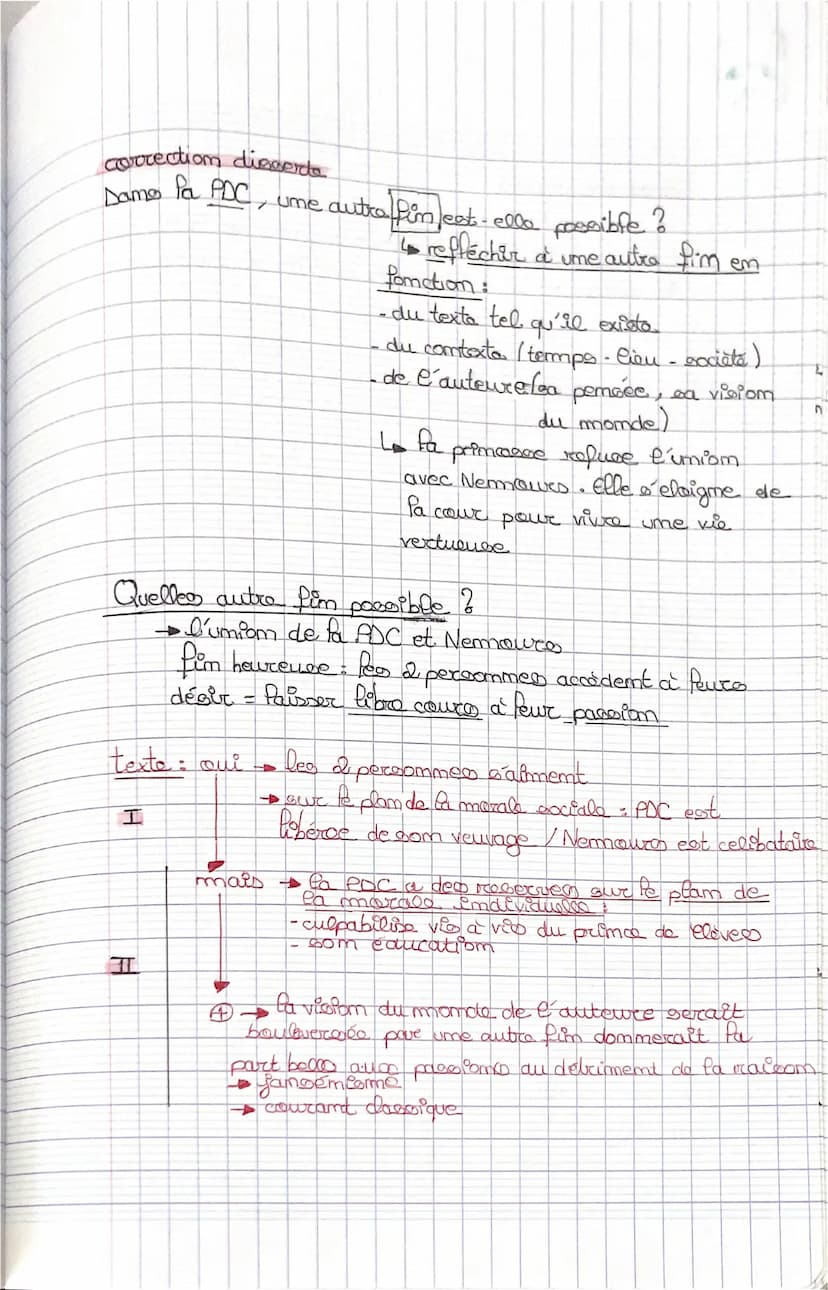 correction disserta
Dans la PDC, une autre fin est-elle possible ?
↳ réfléchir à une autre fin en
fonction :
- du texte tel qu'il existe
- du contexte (temps - lieu - société)
- de l'auteure (sa pensée, sa vision
du monde)
↳ la princesse refuse l'union
avec Nemours. Elle s'eloigne de
la cour pour vivre une vie
vertueuse
Quelles autre fin possible ?
→ l'union de la PDC et Nemours
fin heureuse : les 2 personnes accèdent à leurs
désir = laisser libre cours à leur passion
texte : oui → les 2 personnes s'aiment
→ sur le plan de la morale sociale : PDC est
I
libérée de son veuvage / Nemours est celibataire
mais → la PDC a des reserves sur le plan de
la morale individuelle :
- culpabilise vis à vis du prince de Clèves
- son éducation
II
+ → la vision du monde de l'auteure serait
bouleversée par une autre fin donnerait la
part belle aux passions au detriment de la raison
→ jansénisme
→ courant classique